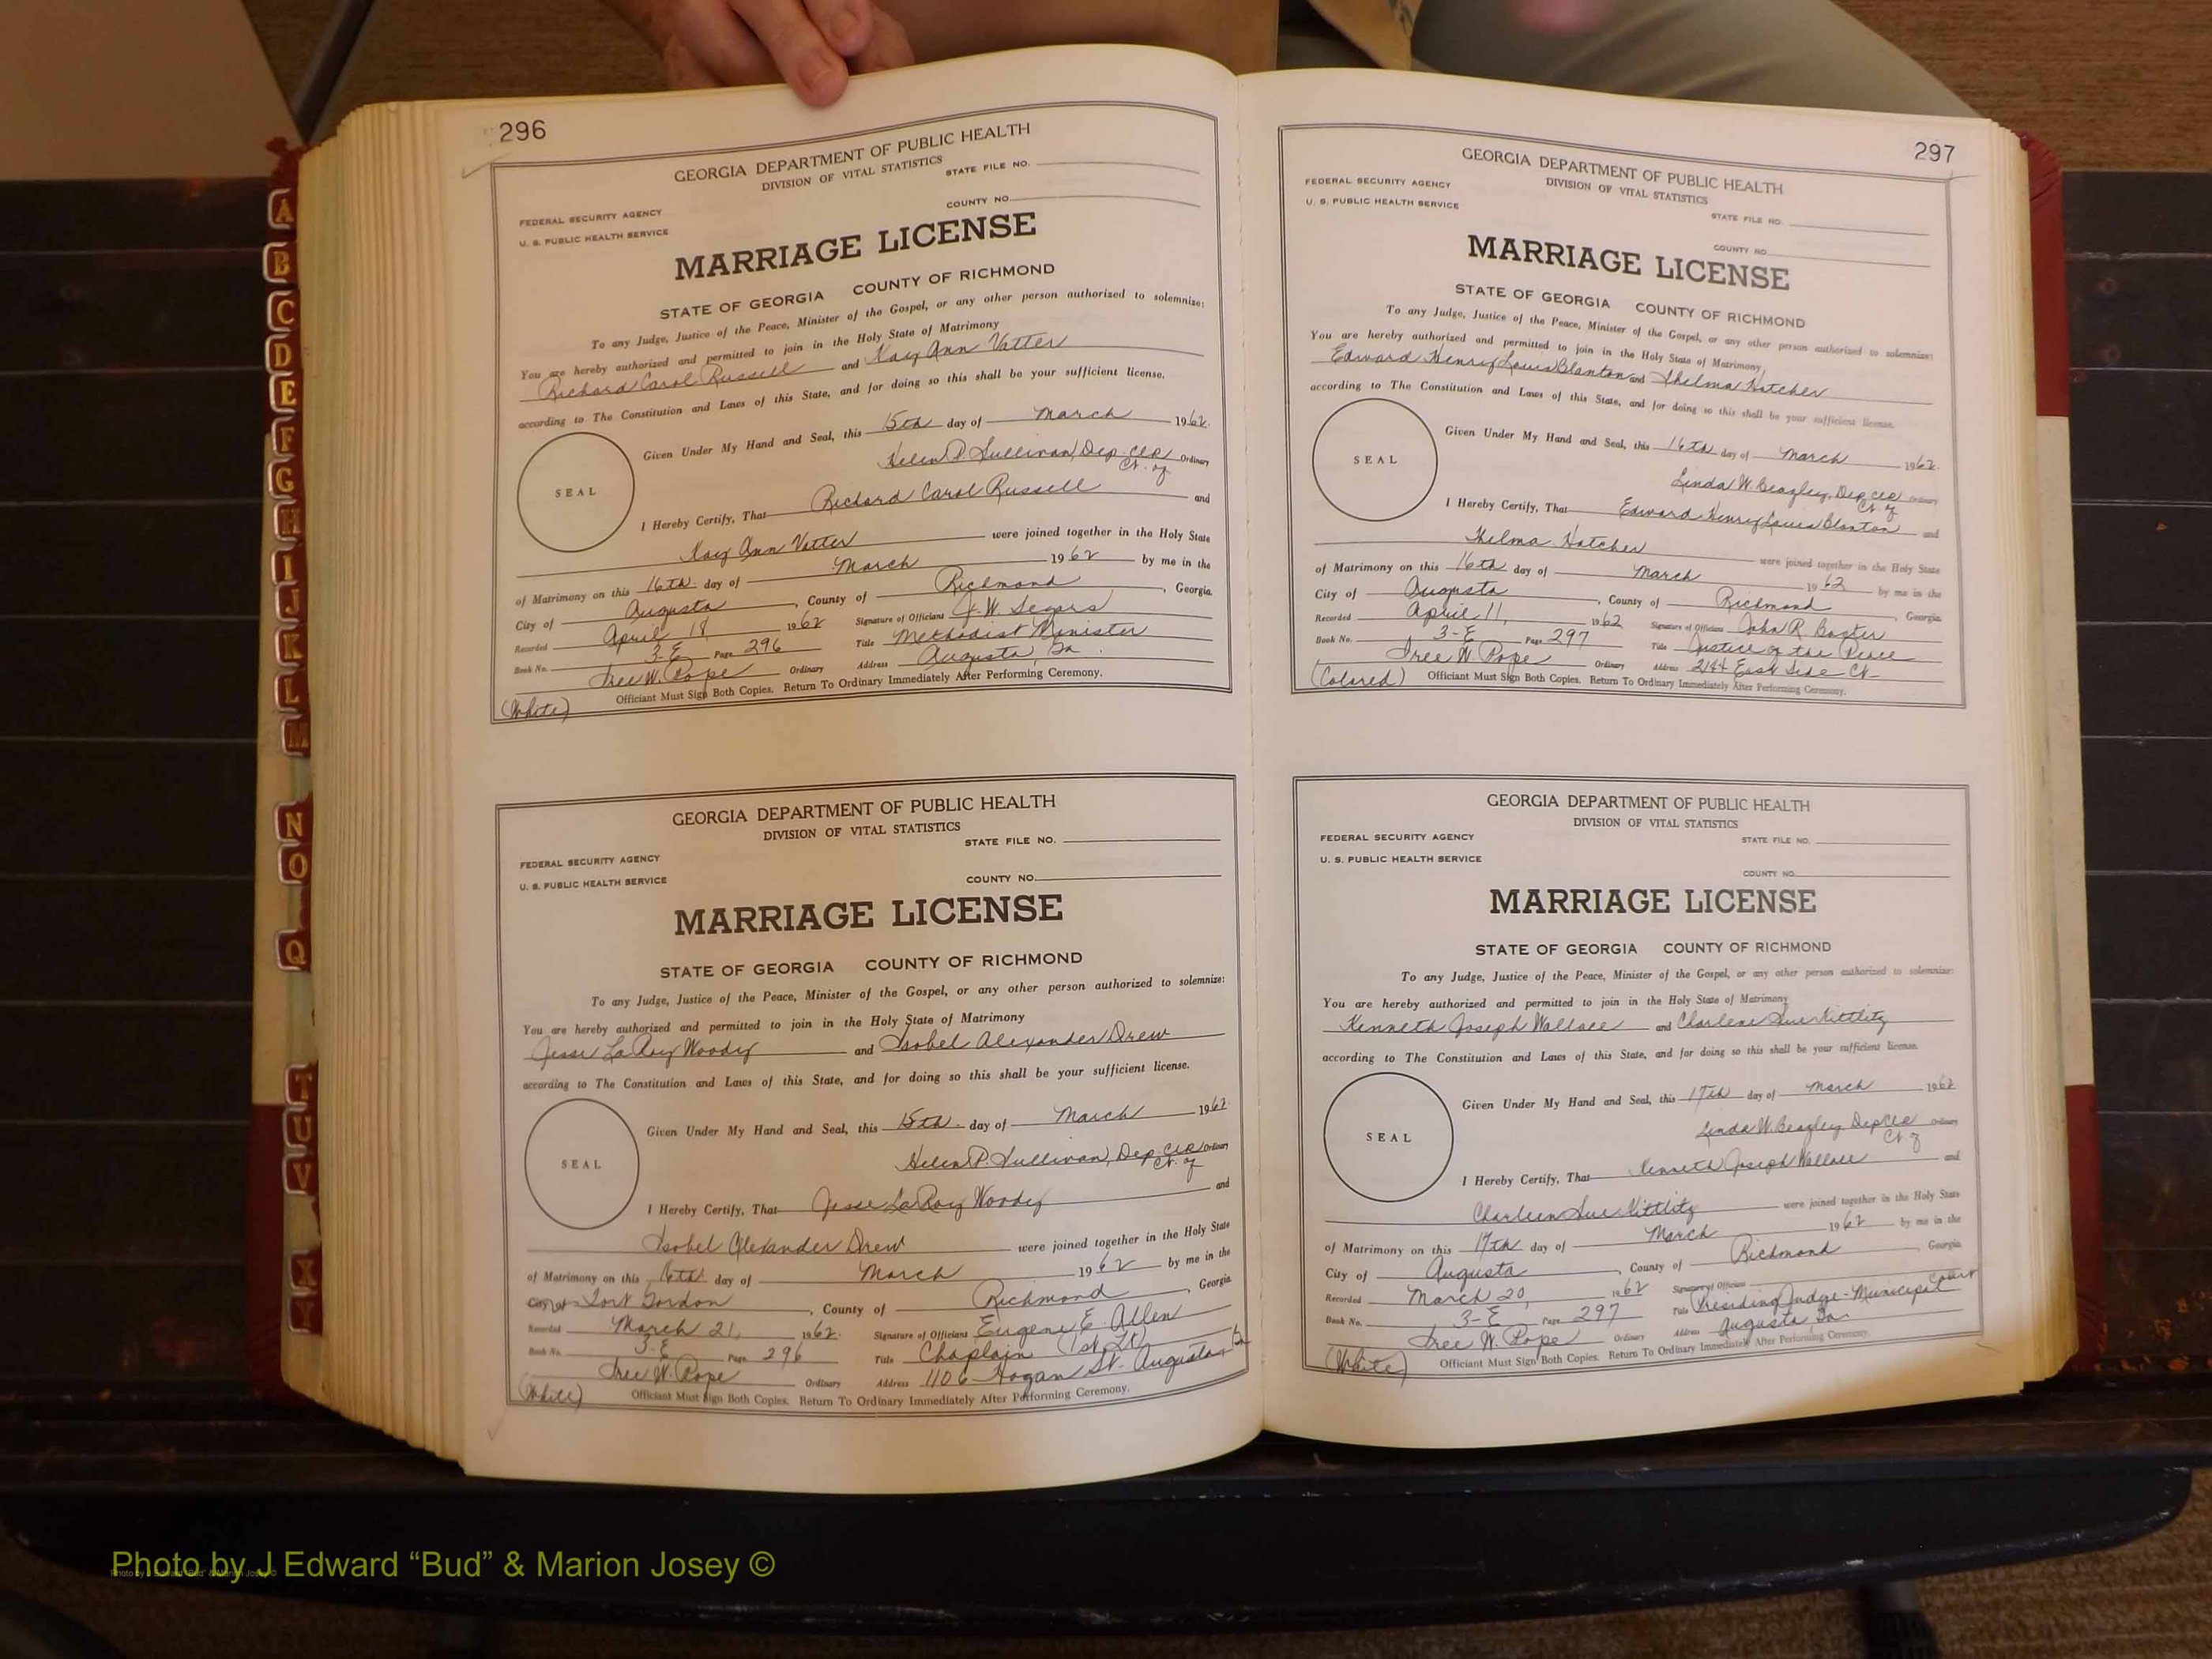 296
GEORGIA DEPARTMENT OF PUBLIC HEALTH
DIVISION OF VITAL STATISTICS
STATE FILE NO.
FEDERAL SECURITY AGENCY
COUNTY NO.
U. S. PUBLIC HEALTH SERVICE
MARRIAGE LICENSE
STATE OF GEORGIA COUNTY OF RICHMOND
To any Judge, Justice of the Peace, Minister of the Gospel, or any other person authorized to solemnize:
You are hereby authorized and permitted to join in the Holy State of Matrimony
Richard Carol Russell and Kay Ann Vatter
according to The Constitution and Laws of this State, and for doing so this shall be your sufficient license.
Given Under My Hand and Seal, this 15th day of March 1962.
Helen P. Sullivan, Dep. Clk Ordinary
Ct. of
SEAL
I Hereby Certify, That Richard Carol Russell and
Kay Ann Vatter were joined together in the Holy State
of Matrimony on this 16th day of March 1962 by me in the
City of Augusta, County of Richmond, Georgia.
Recorded April 18 1962 Signature of Officiant J. W. Segars
Book No. 3-E Page 296 Title Methodist Minister
Tree W. Pope Ordinary Address Augusta, Ga.
Officiant Must Sign Both Copies. Return To Ordinary Immediately After Performing Ceremony.
(White)
GEORGIA DEPARTMENT OF PUBLIC HEALTH
DIVISION OF VITAL STATISTICS
STATE FILE NO.
FEDERAL SECURITY AGENCY
U. S. PUBLIC HEALTH SERVICE
COUNTY NO.
MARRIAGE LICENSE
STATE OF GEORGIA COUNTY OF RICHMOND
To any Judge, Justice of the Peace, Minister of the Gospel, or any other person authorized to solemnize:
You are hereby authorized and permitted to join in the Holy State of Matrimony
Jesse LaRoy Woody and Isobel Alexander Drew
according to The Constitution and Laws of this State, and for doing so this shall be your sufficient license.
Given Under My Hand and Seal, this 15th day of March 1962.
Helen P. Sullivan, Dep Clk Ordinary
Ct. of
SEAL
I Hereby Certify, That Jesse LaRoy Woody and
Isobel Alexander Drew were joined together in the Holy State
of Matrimony on this 16th day of March 1962 by me in the
City of Fort Gordon, County of Richmond, Georgia
Recorded March 21, 1962. Signature of Officiant Eugene E. Allen
Book No. 3-E Page 296 Title Chaplain (1st Lt)
Tree W. Pope Ordinary Address 1106 Hogan St. Augusta, Ga
(White) Officiant Must Sign Both Copies. Return To Ordinary Immediately After Performing Ceremony.
297
GEORGIA DEPARTMENT OF PUBLIC HEALTH
DIVISION OF VITAL STATISTICS
FEDERAL SECURITY AGENCY
U. S. PUBLIC HEALTH SERVICE
STATE FILE NO.
COUNTY NO.
MARRIAGE LICENSE
STATE OF GEORGIA COUNTY OF RICHMOND
To any Judge, Justice of the Peace, Minister of the Gospel, or any other person authorized to solemnize:
You are hereby authorized and permitted to join in the Holy State of Matrimony
Edward Henry Louis Blanton and Thelma Hatcher
according to The Constitution and Laws of this State, and for doing so this shall be your sufficient license.
Given Under My Hand and Seal, this 16th day of March 1962.
Linda W. Beazley, Dep Clk Ordinary
Ct. of
SEAL
I Hereby Certify, That Edward Henry Louis Blanton and
Thelma Hatcher were joined together in the Holy State
of Matrimony on this 16th day of March 1962 by me in the
City of Augusta, County of Richmond, Georgia
Recorded April 11, 1962 Signature of Officiant John R Baxter
Book No. 3-E Page 297 Title Justice of the Peace
Tree W. Pope Ordinary Address 2144 East Side Ct
(Colored) Officiant Must Sign Both Copies. Return To Ordinary Immediately After Performing Ceremony.
GEORGIA DEPARTMENT OF PUBLIC HEALTH
DIVISION OF VITAL STATISTICS
FEDERAL SECURITY AGENCY
STATE FILE NO.
U. S. PUBLIC HEALTH SERVICE
COUNTY NO.
MARRIAGE LICENSE
STATE OF GEORGIA COUNTY OF RICHMOND
To any Judge, Justice of the Peace, Minister of the Gospel, or any other person authorized to solemnize:
You are hereby authorized and permitted to join in the Holy State of Matrimony
Kenneth Joseph Wallace and Charlene Sue Kittlitz
according to The Constitution and Laws of this State, and for doing so this shall be your sufficient license.
Given Under My Hand and Seal, this 17th day of March 1962
Linda W. Beazley Dep Clk Ordinary
Ct. of
SEAL
I Hereby Certify, That Kenneth Joseph Wallace and
Charleen Sue Kittlitz were joined together in the Holy State
of Matrimony on this 17th day of March 1962 by me in the
City of Augusta, County of Richmond, Georgia
Recorded March 20, 1962 Signature of Officiant
Book No. 3-E Page 297 Title Presiding Judge-Municipal Court
Tree W. Pope Ordinary Address Augusta, Ga.
(White) Officiant Must Sign Both Copies. Return To Ordinary Immediately After Performing Ceremony.
A
B
C
D
E
F
G
H
I
J
K
L
M
N
O
Q
T
U
V
X
Y
Photo by J Edward “Bud” & Marion Josey ©
Photo by J Edward "Bud" & Marion Josey ©